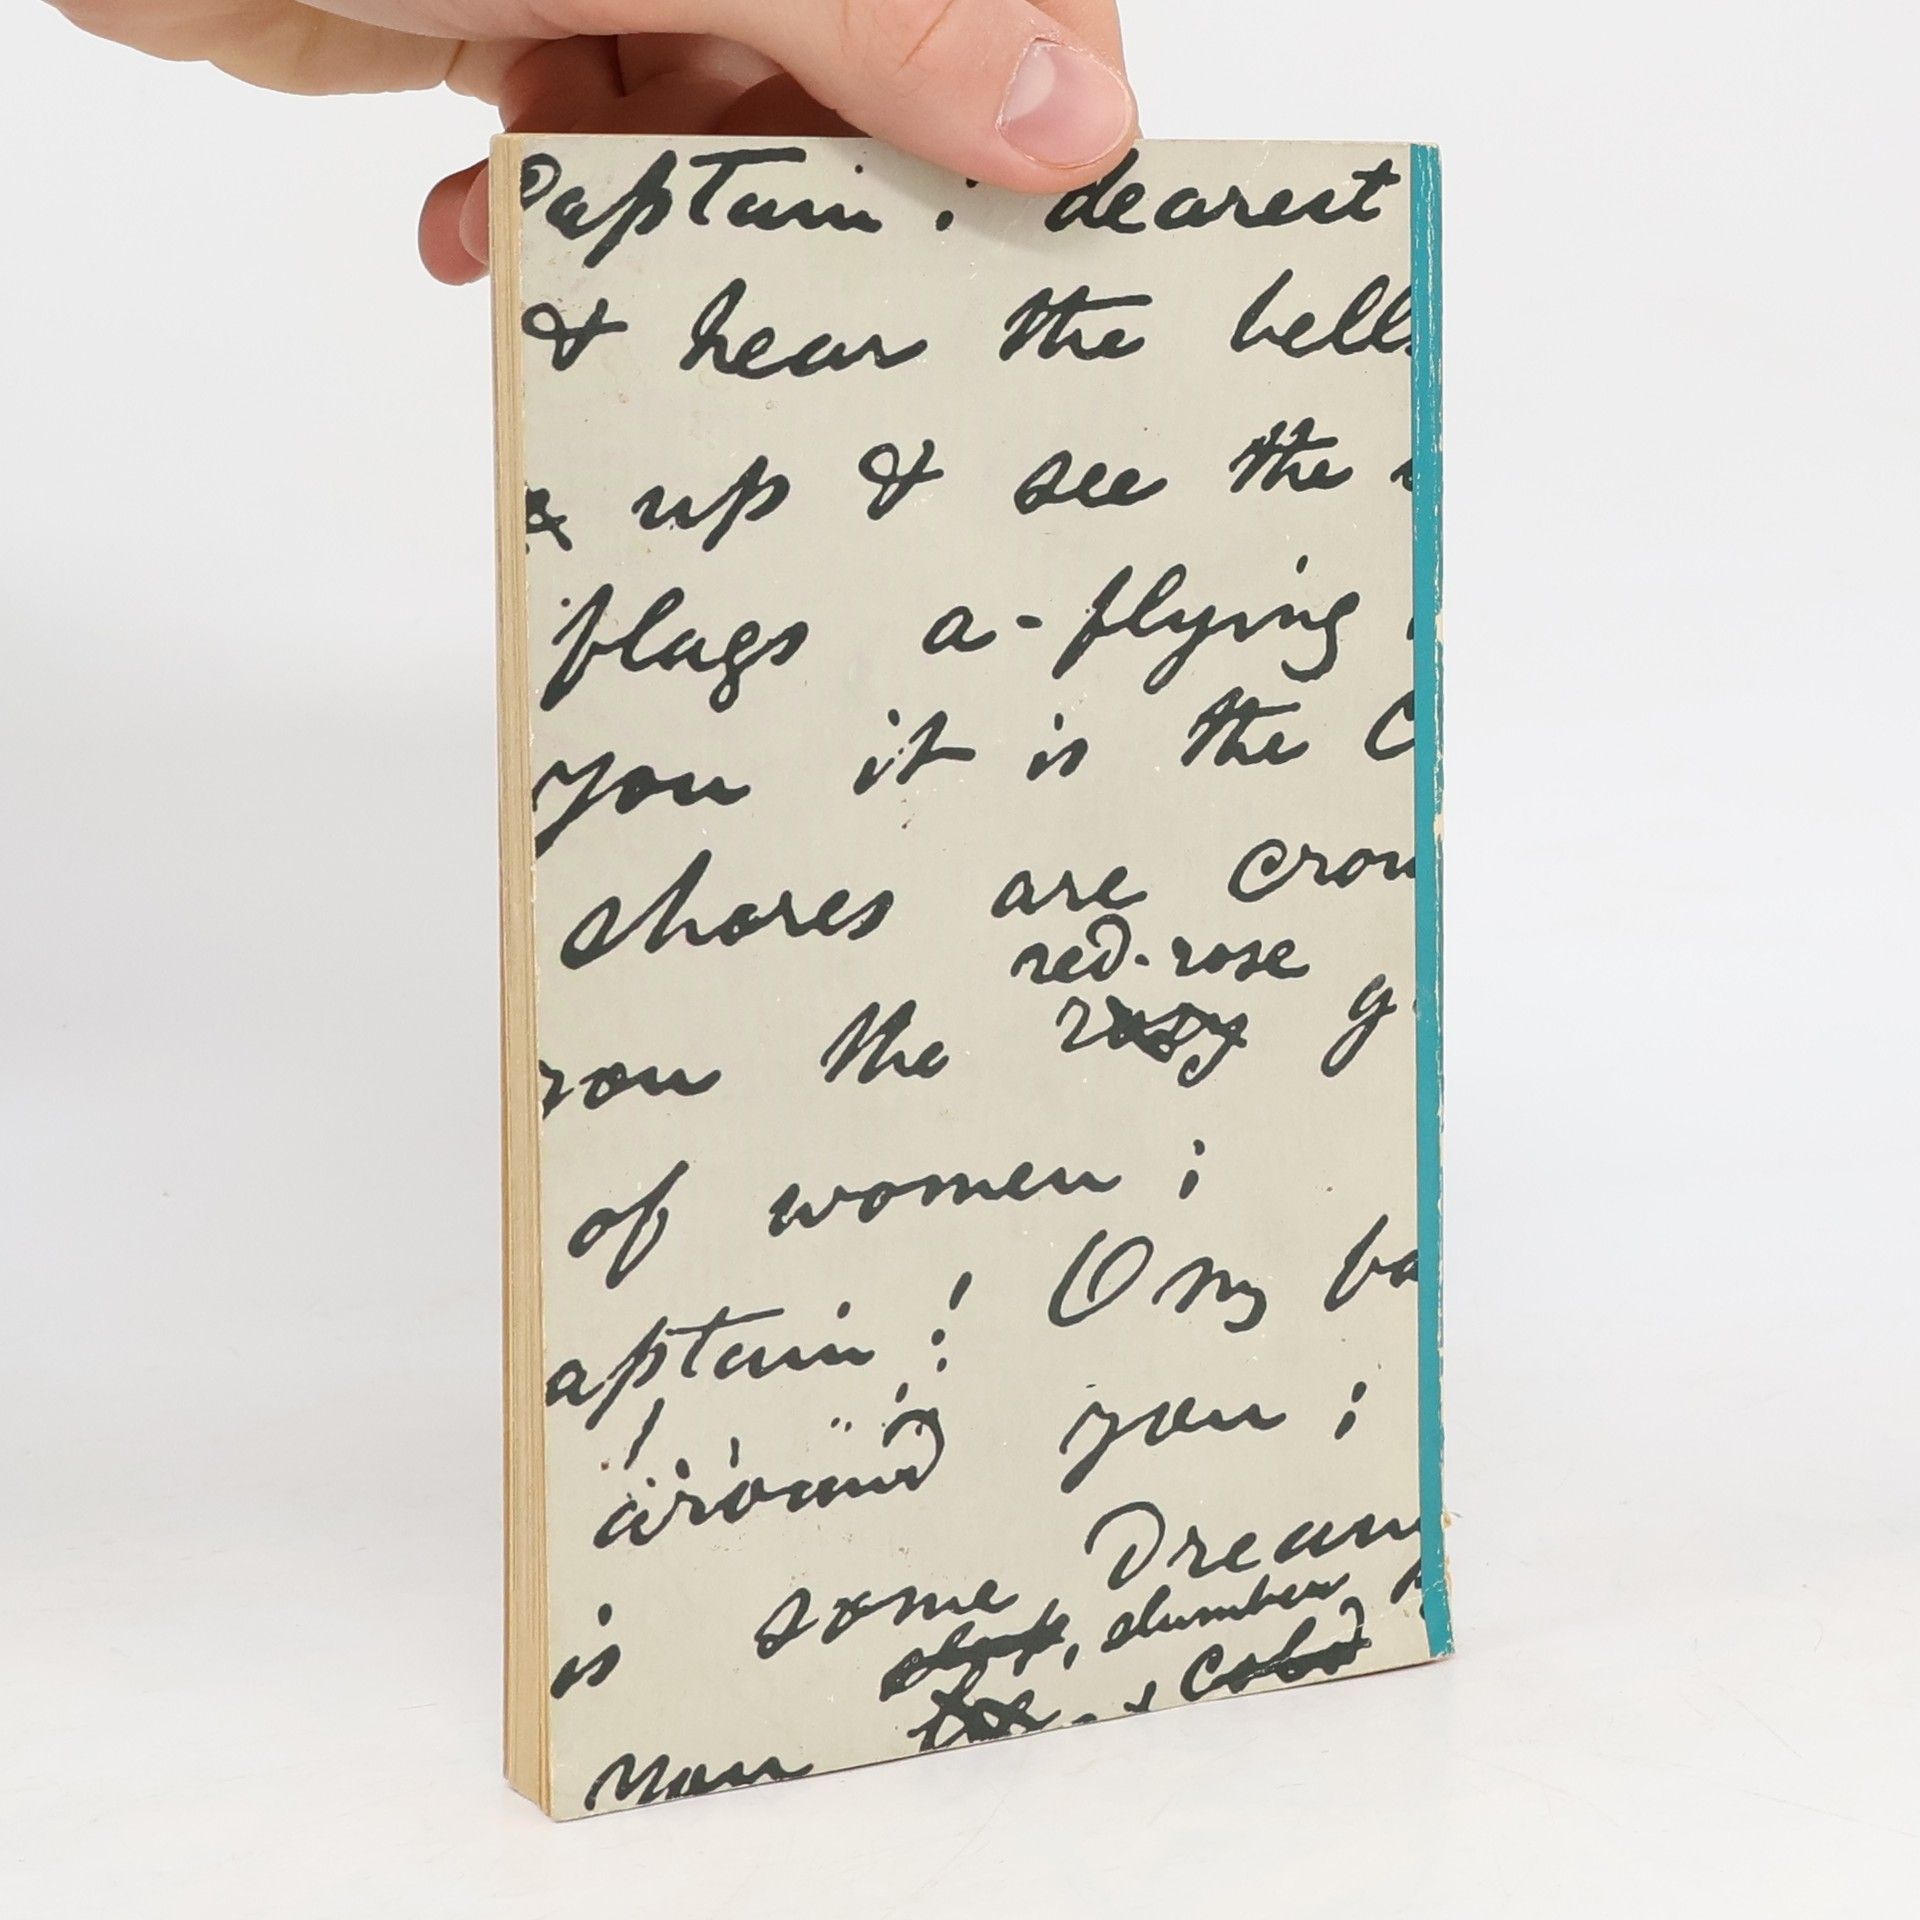 Captain! dearest
& hear the bells
up & see the
flags a-flying
you it is the
shores are crow
red-rose
you the rosy g
of women;
aptain! O my
around you;
is some Dream
slumber
you